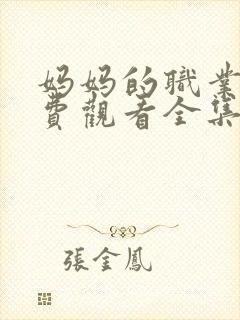 妈妈的職業
費觀看全集
張金鳳